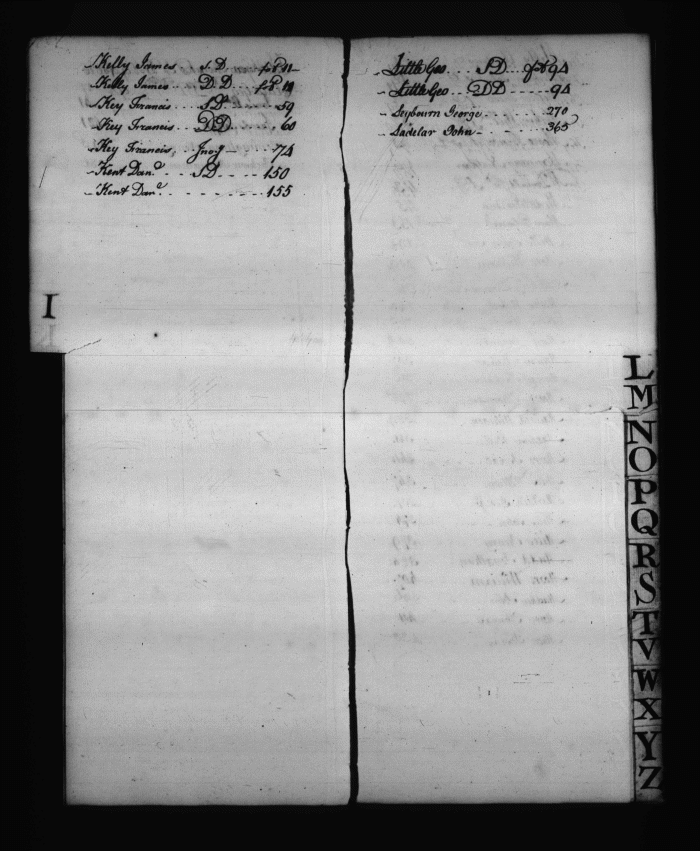 Kelly James S.D. fol 11
Kelly James D.D. fol 12
Key Francis SD 59
Key Francis DD 60
Key Francis, Invy 74
Kent Dan. SD 150
Kent Dan. 155
I
Little Geo SD fol 94
Little Geo DD 94
Leybourn George 270
Ladelar John 365
L
M
N
O
P
Q
R
S
T
V
W
X
Y
Z